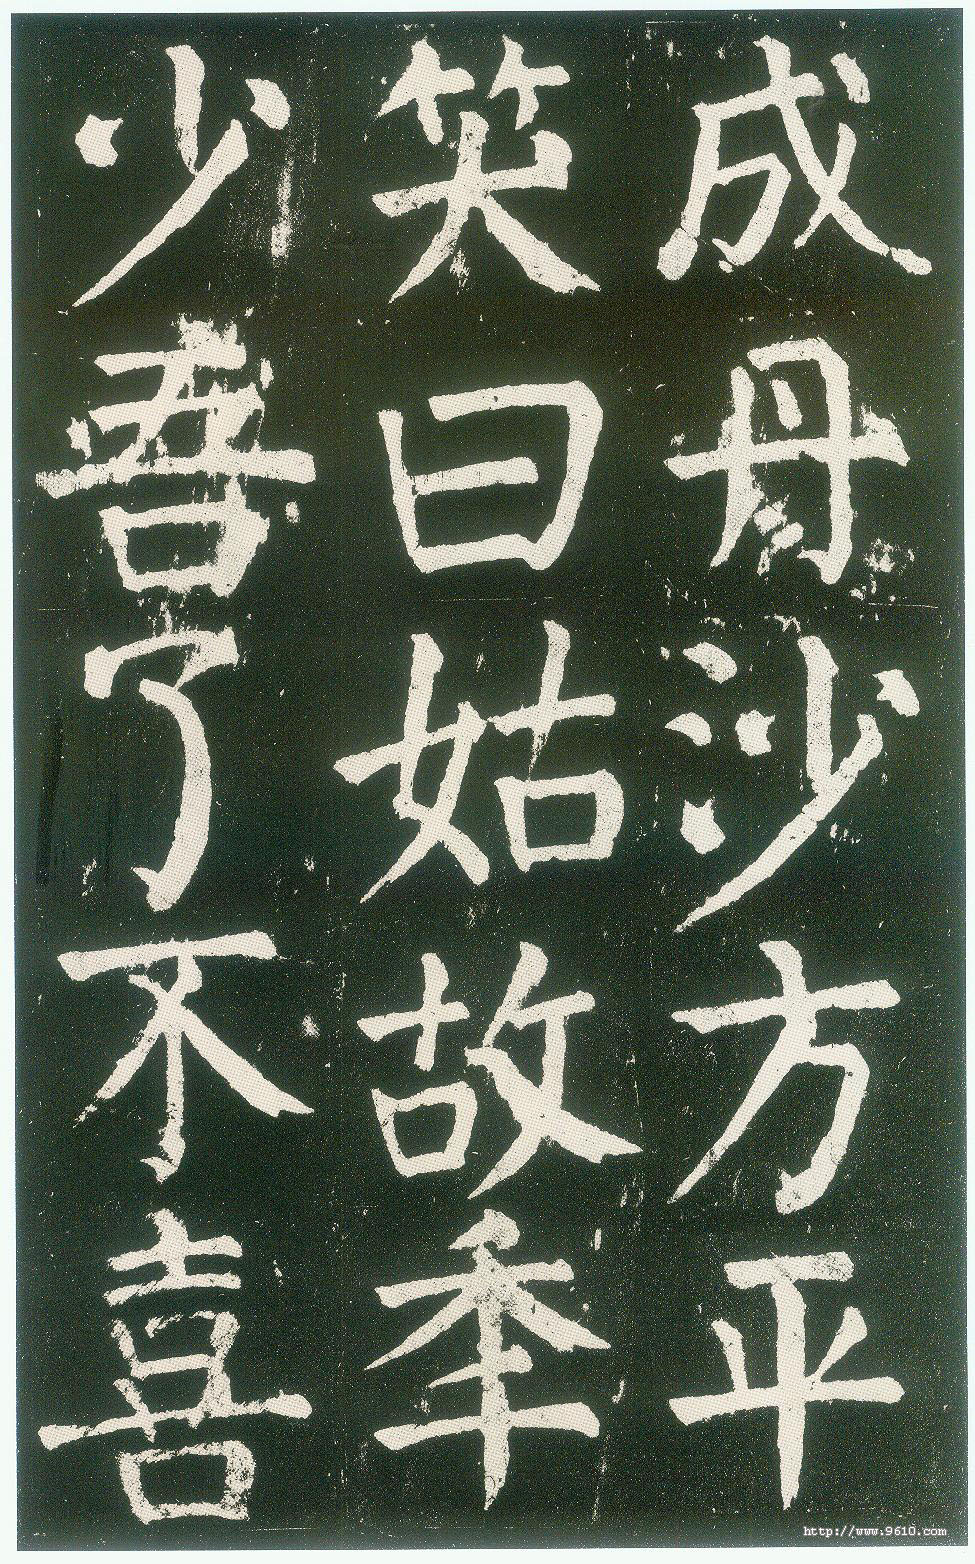 成丹沙方平
笑曰姑故秊
少吾了不喜
http://www.9610.com